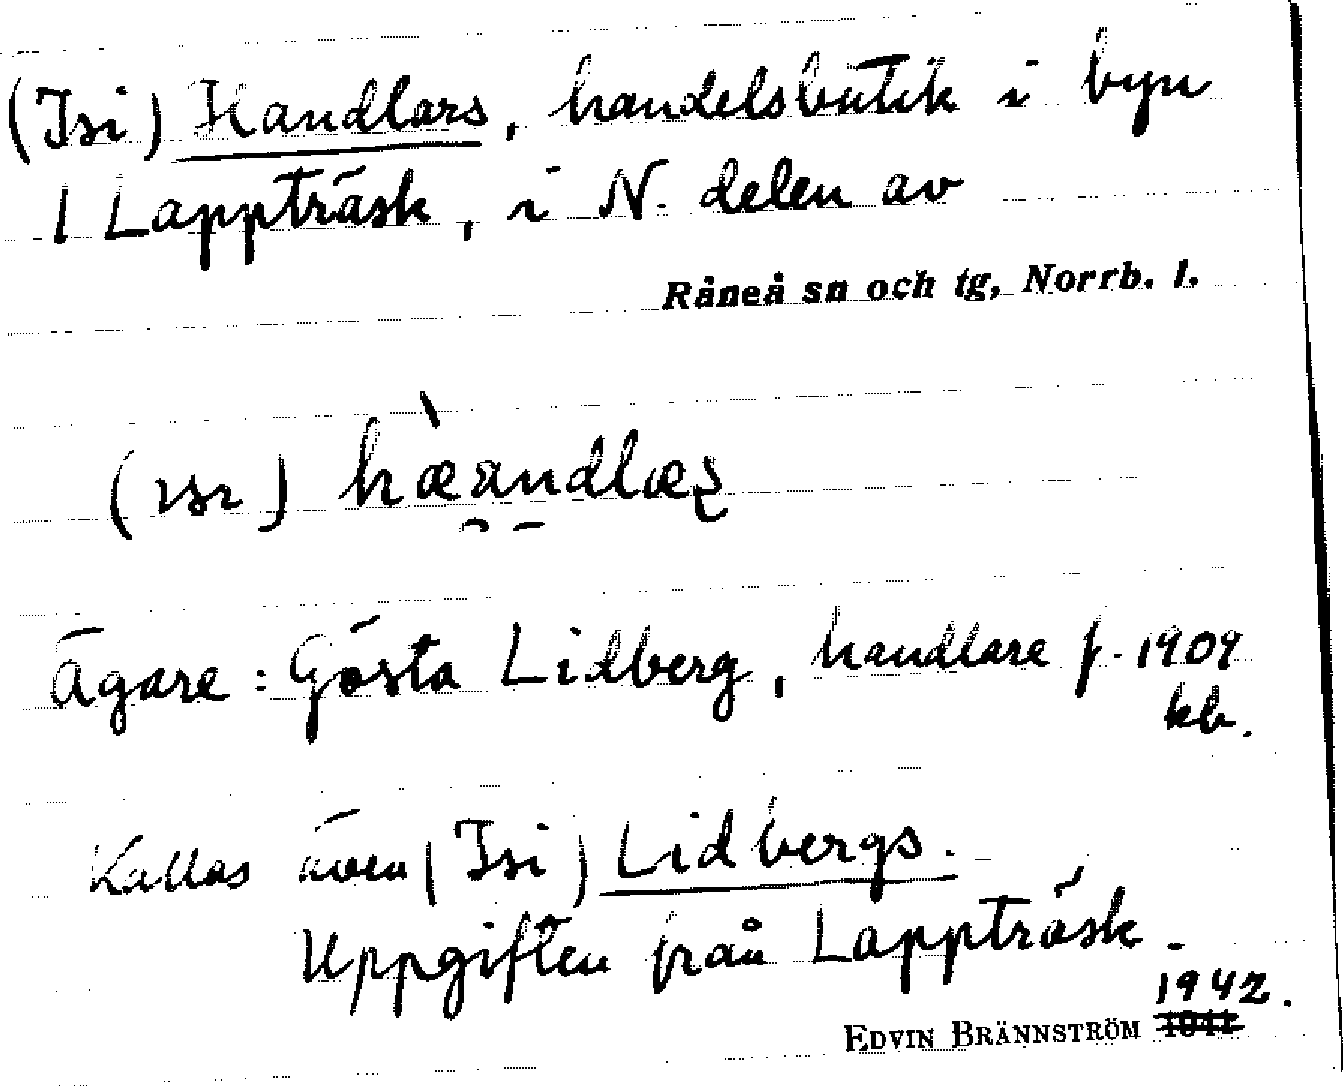 (Isi) Handlars, handelsbutik i byn
1 Lappträsk, i N. delen av
Råneå sn och tg, Norrb. l.
Ägare: Gösta Lidberg, handlare f. 1909
kb.
Kallas även (Isi) Lidbergs.
Uppgiften från Lappträsk.
1942.
EDVIN BRÄNNSTRÖM 1941